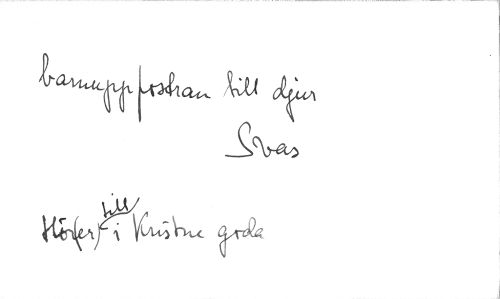 barnuppfostran till djur
Svas
Hör(er) till i Kristne goda